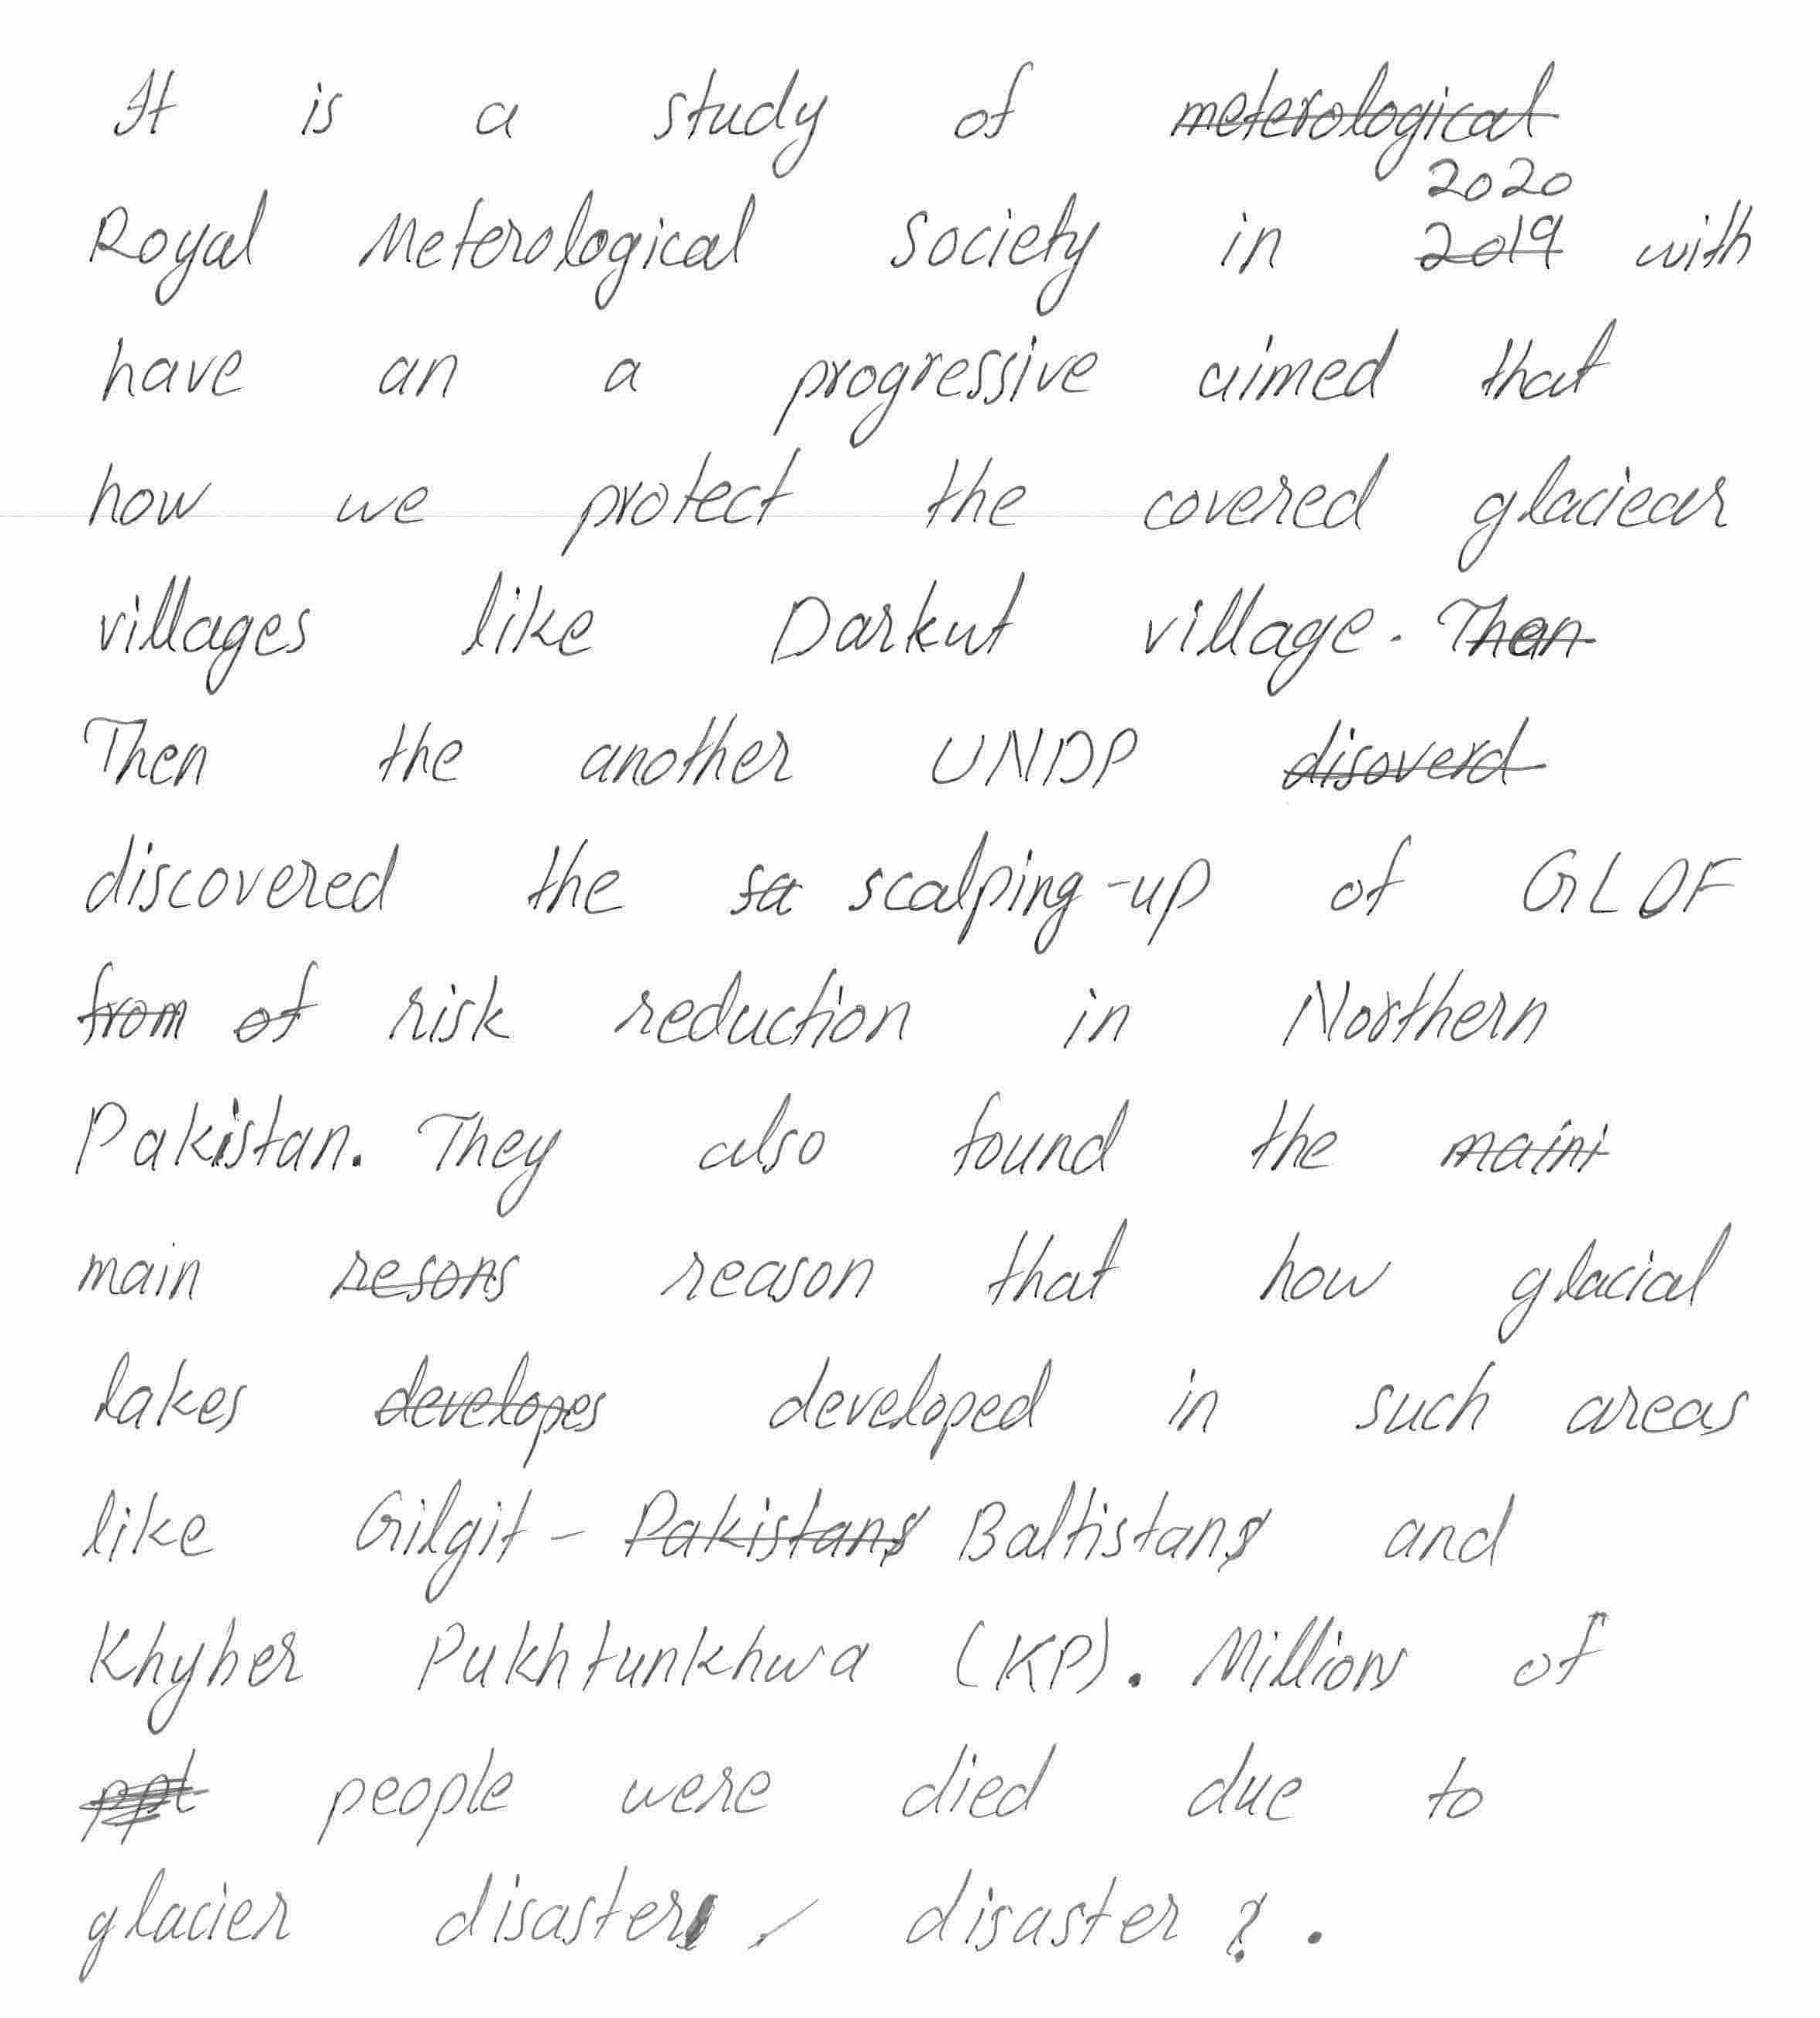 It is a study of ~~meterological~~
2020
Royal Meterological Society in ~~2019~~ with
have an a progressive aimed that
how we protect the covered glaciear
villages like Darkut village. ~~Than~~
Then the another UNDP ~~disoverd~~
discovered the ~~sa~~ scalping-up of GLOF
~~from~~ ~~of~~ risk reduction in Northern
Pakistan. They also found the ~~maini~~
main ~~resons~~ reason that how glacial
lakes ~~developes~~ developed in such areas
like Gilgit - ~~Pakistans~~ Baltistans and
Khyber Pukhtunkhwa (KP). Millions of
people were died due to
glacier disaster / disaster ? .